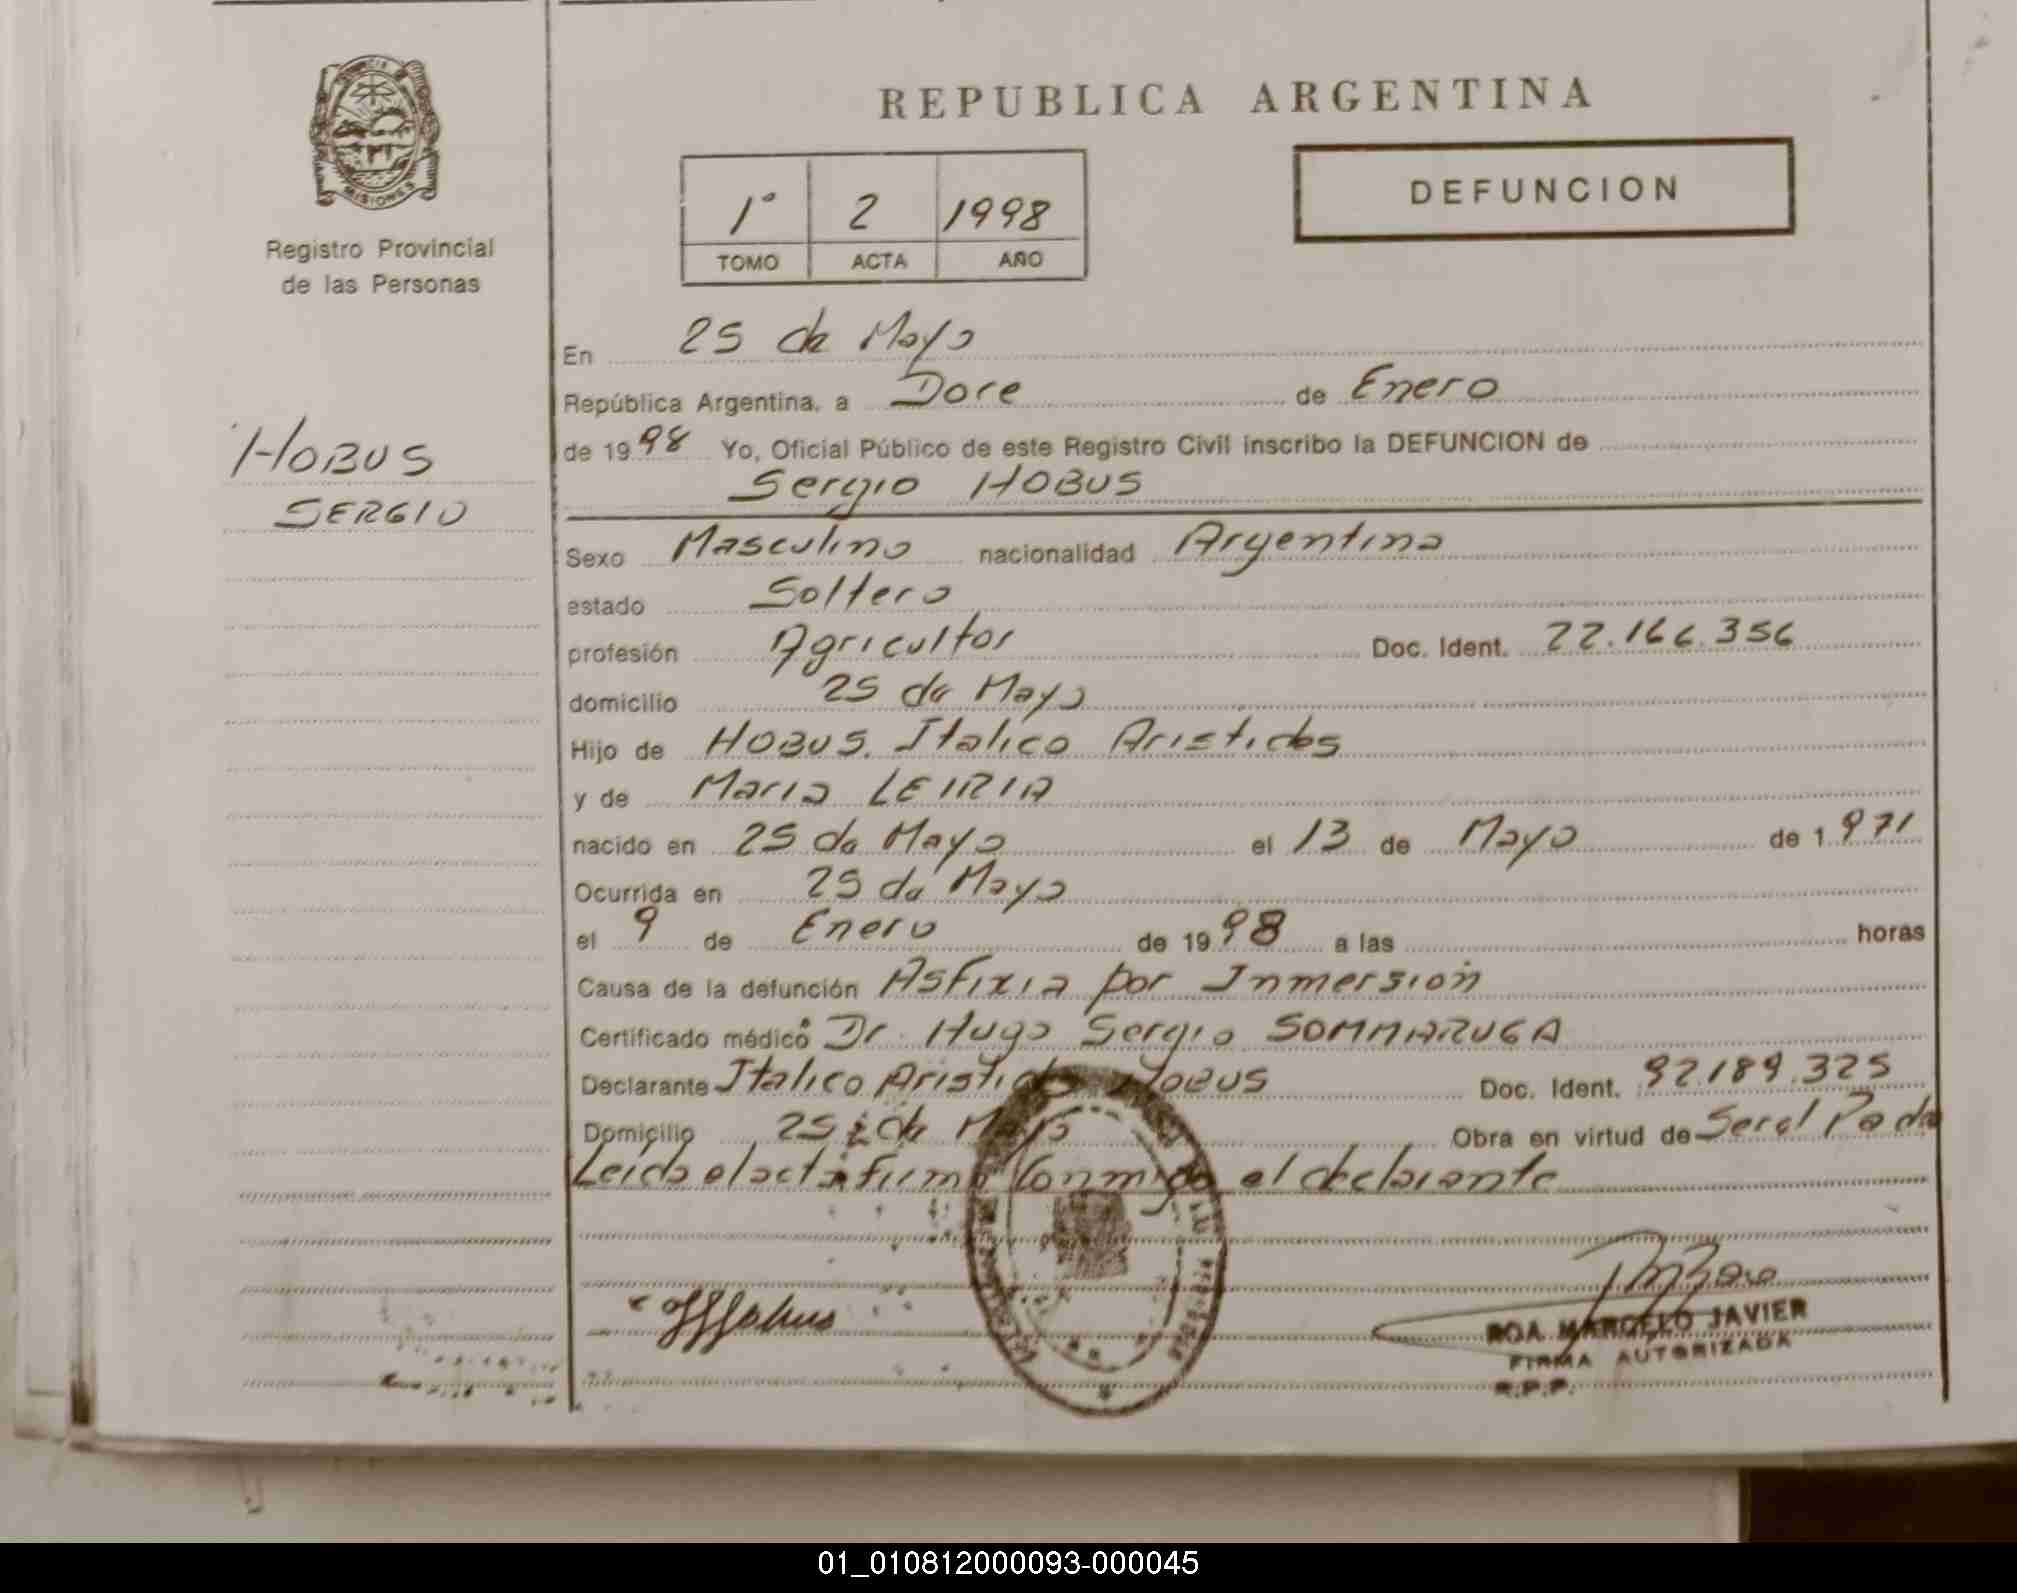 REPUBLICA ARGENTINA
MISIONES
Registro Provincial
de las Personas
1º 2 1998
TOMO ACTA AÑO
DEFUNCION
HOBUS
SERGIO
En 25 de Mayo
República Argentina, a Doce de Enero
de 1998 Yo, Oficial Público de este Registro Civil inscribo la DEFUNCION de
Sergio HOBUS
Sexo Masculino nacionalidad Argentina
estado Soltero
profesión Agricultor Doc. Ident. 22.166.356
domicilio 25 de Mayo
Hijo de HOBUS. Italico Aristides
y de Maria LEIRIA
nacido en 25 de Mayo el 13 de Mayo de 1.971
Ocurrida en 25 de Mayo
el 9 de Enero de 1998 a las horas
Causa de la defunción Asfixia por Inmersión
Certificado médico Dr. Hugo Sergio SOMMARUGA
Declarante Italico Aristides HOBUS Doc. Ident. 92.189.325
Domicilio 25 de Mayo Obra en virtud de
Leida el acta firma Conmigo el declarante
ROA MARCELO JAVIER
FIRMA AUTORIZADA
R.P.P.
01_010812000093-000045